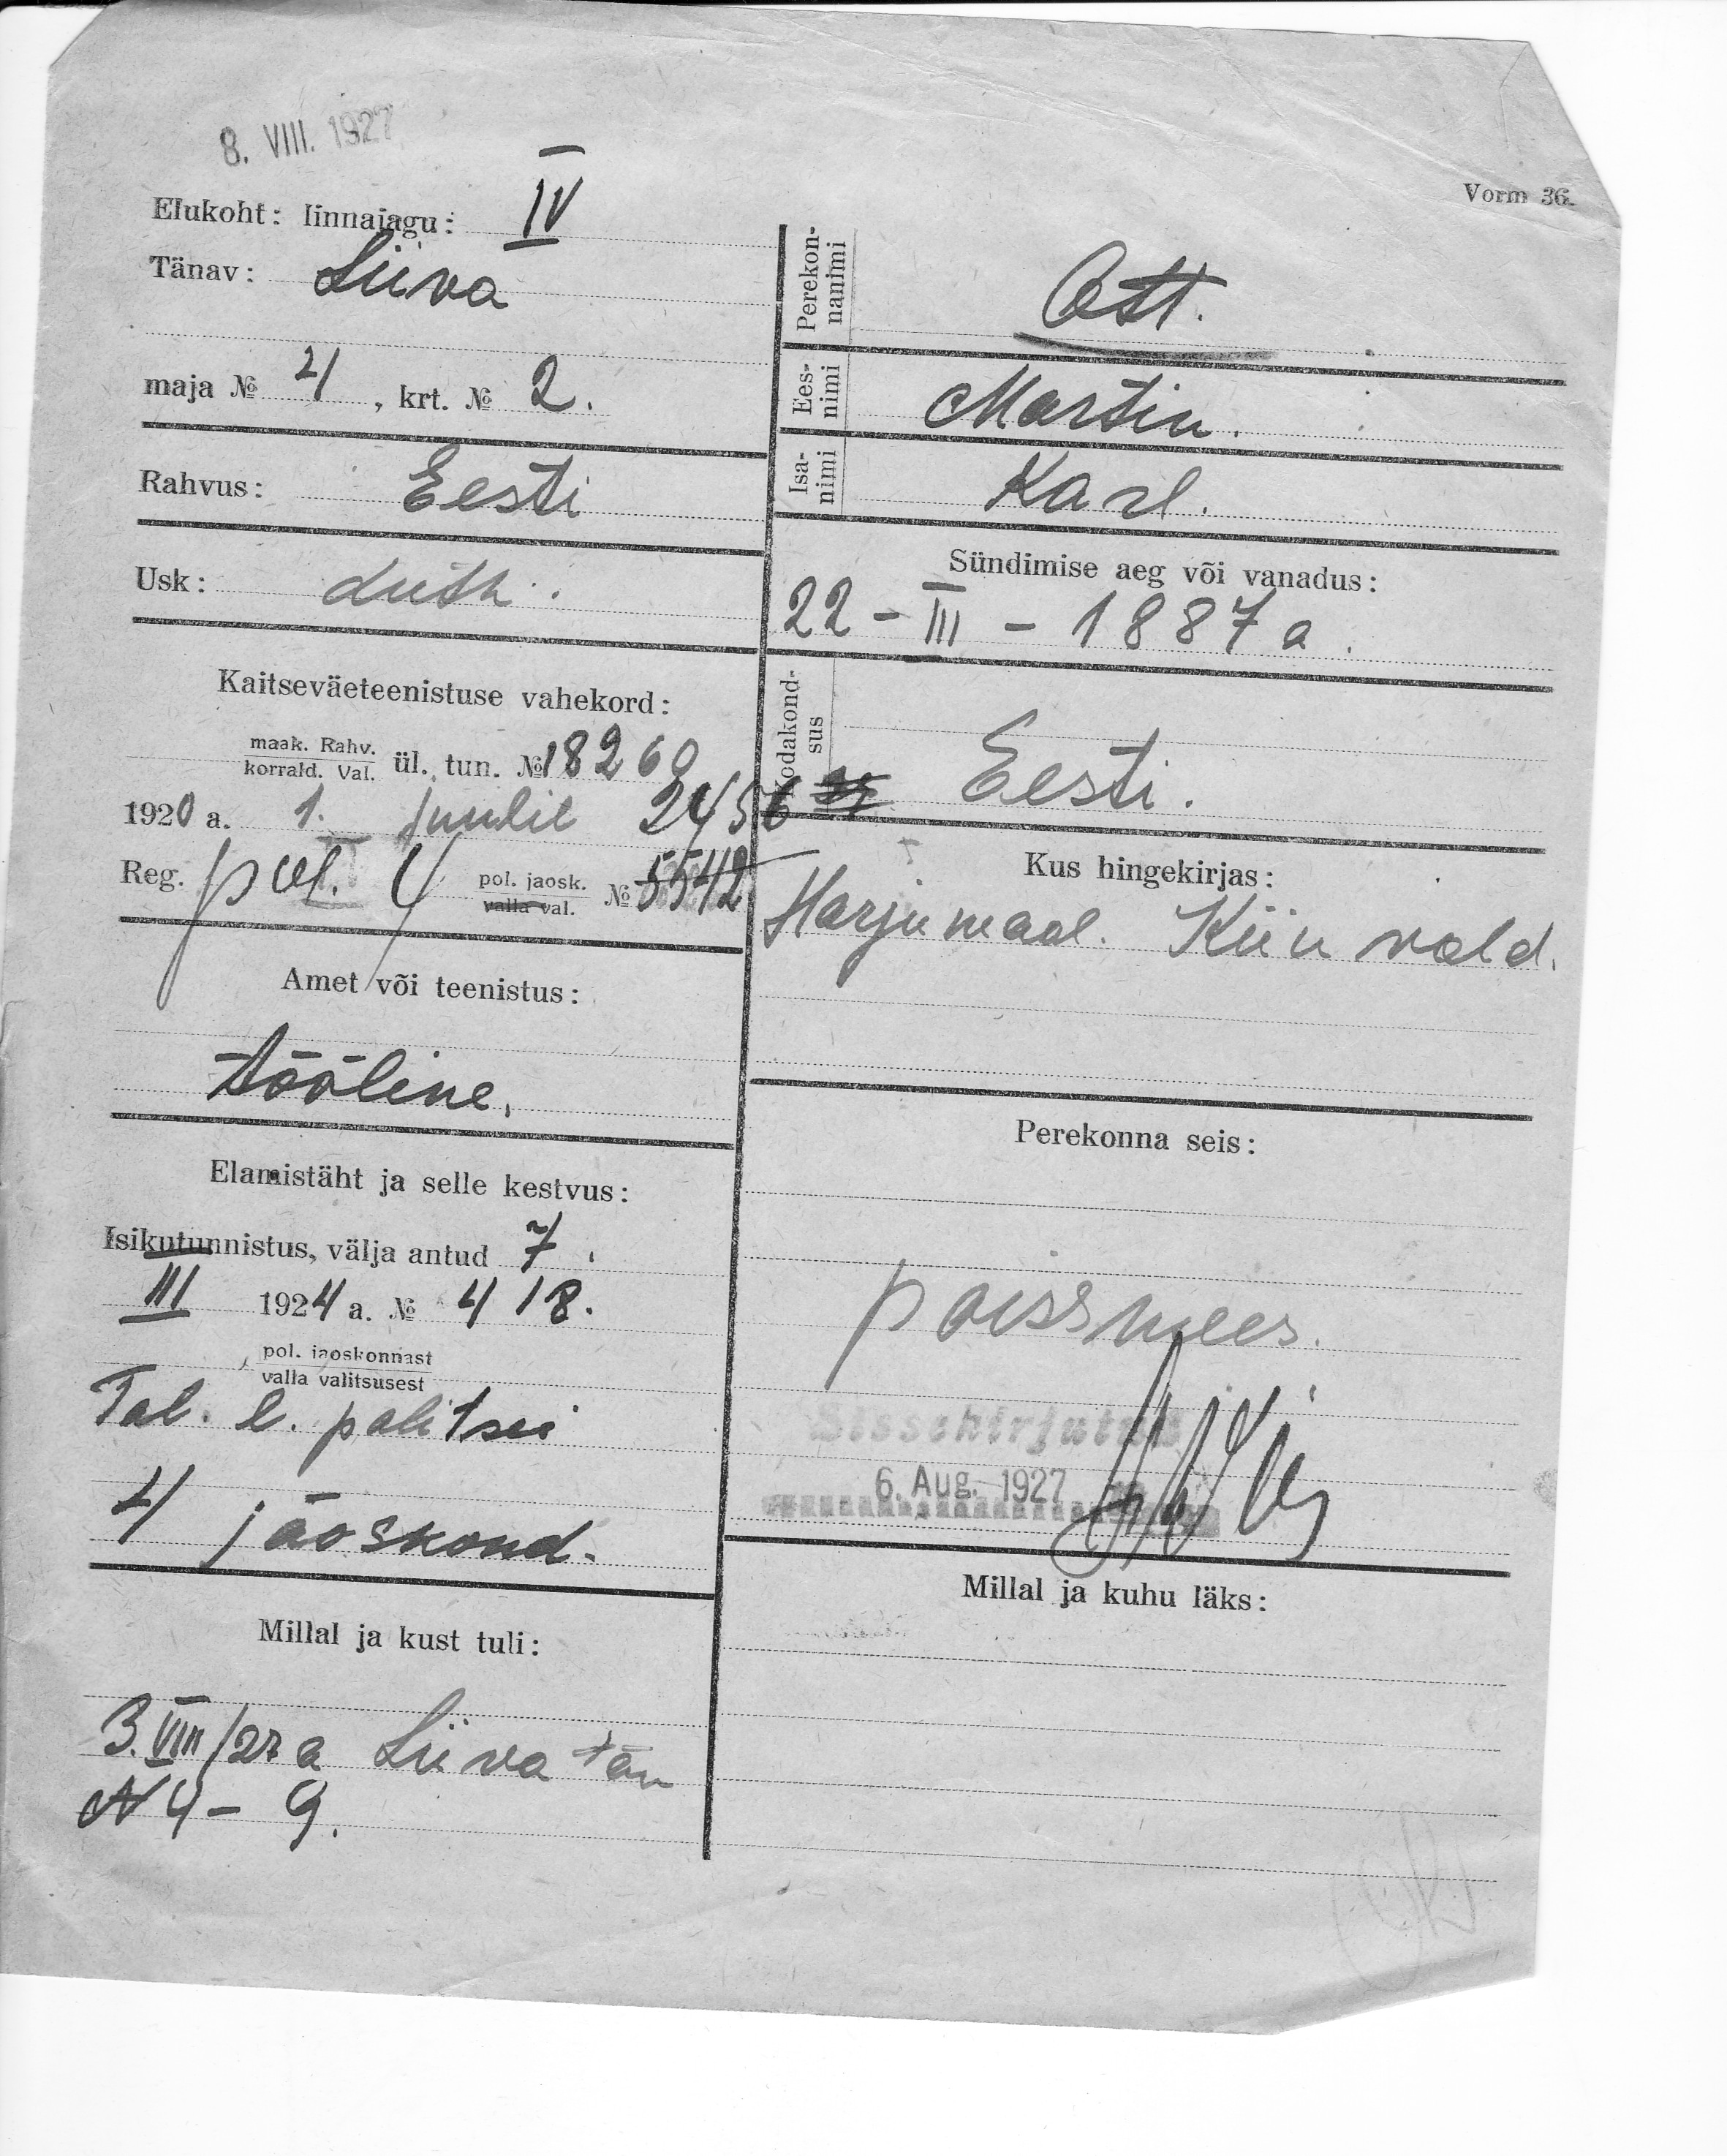 8. VIII. 1927
Vorm 36.
Elukoht: linnajagu: IV
Tänav: Liiva
maja № 4, krt. № 2.
Rahvus: Eesti
Usk: Luth.
Kaitseväeteenistuse vahekord:
maak. Rahv.
korrald. Val. ül. tun. № 18260
1920 a. 1. juulil 2456
Reg. pol. 4 pol. jaosk.
valla val. № 5542
Amet või teenistus:
tööline.
Elamistäht ja selle kestvus:
Isikutunnistus, välja antud 7.
III 1924 a. № 418.
pol. jaoskonnast
valla valitsusest
Tal. l. politsei
4 jaoskond.
Millal ja kust tuli:
3.VIII/27 a Liiva tän
N 4 - 9.
Perekon-
nanimi
Ott.
Ees-
nimi
Martin.
Isa-
nimi
Karl.
Sündimise aeg või vanadus:
22 - III - 1887 a.
Kodakond-
sus
Eesti.
Kus hingekirjas:
Harju maal. Kiiu vald.
Perekonna seis:
poissmees.
Sissekirjutud
6. Aug. 1927
Millal ja kuhu läks: